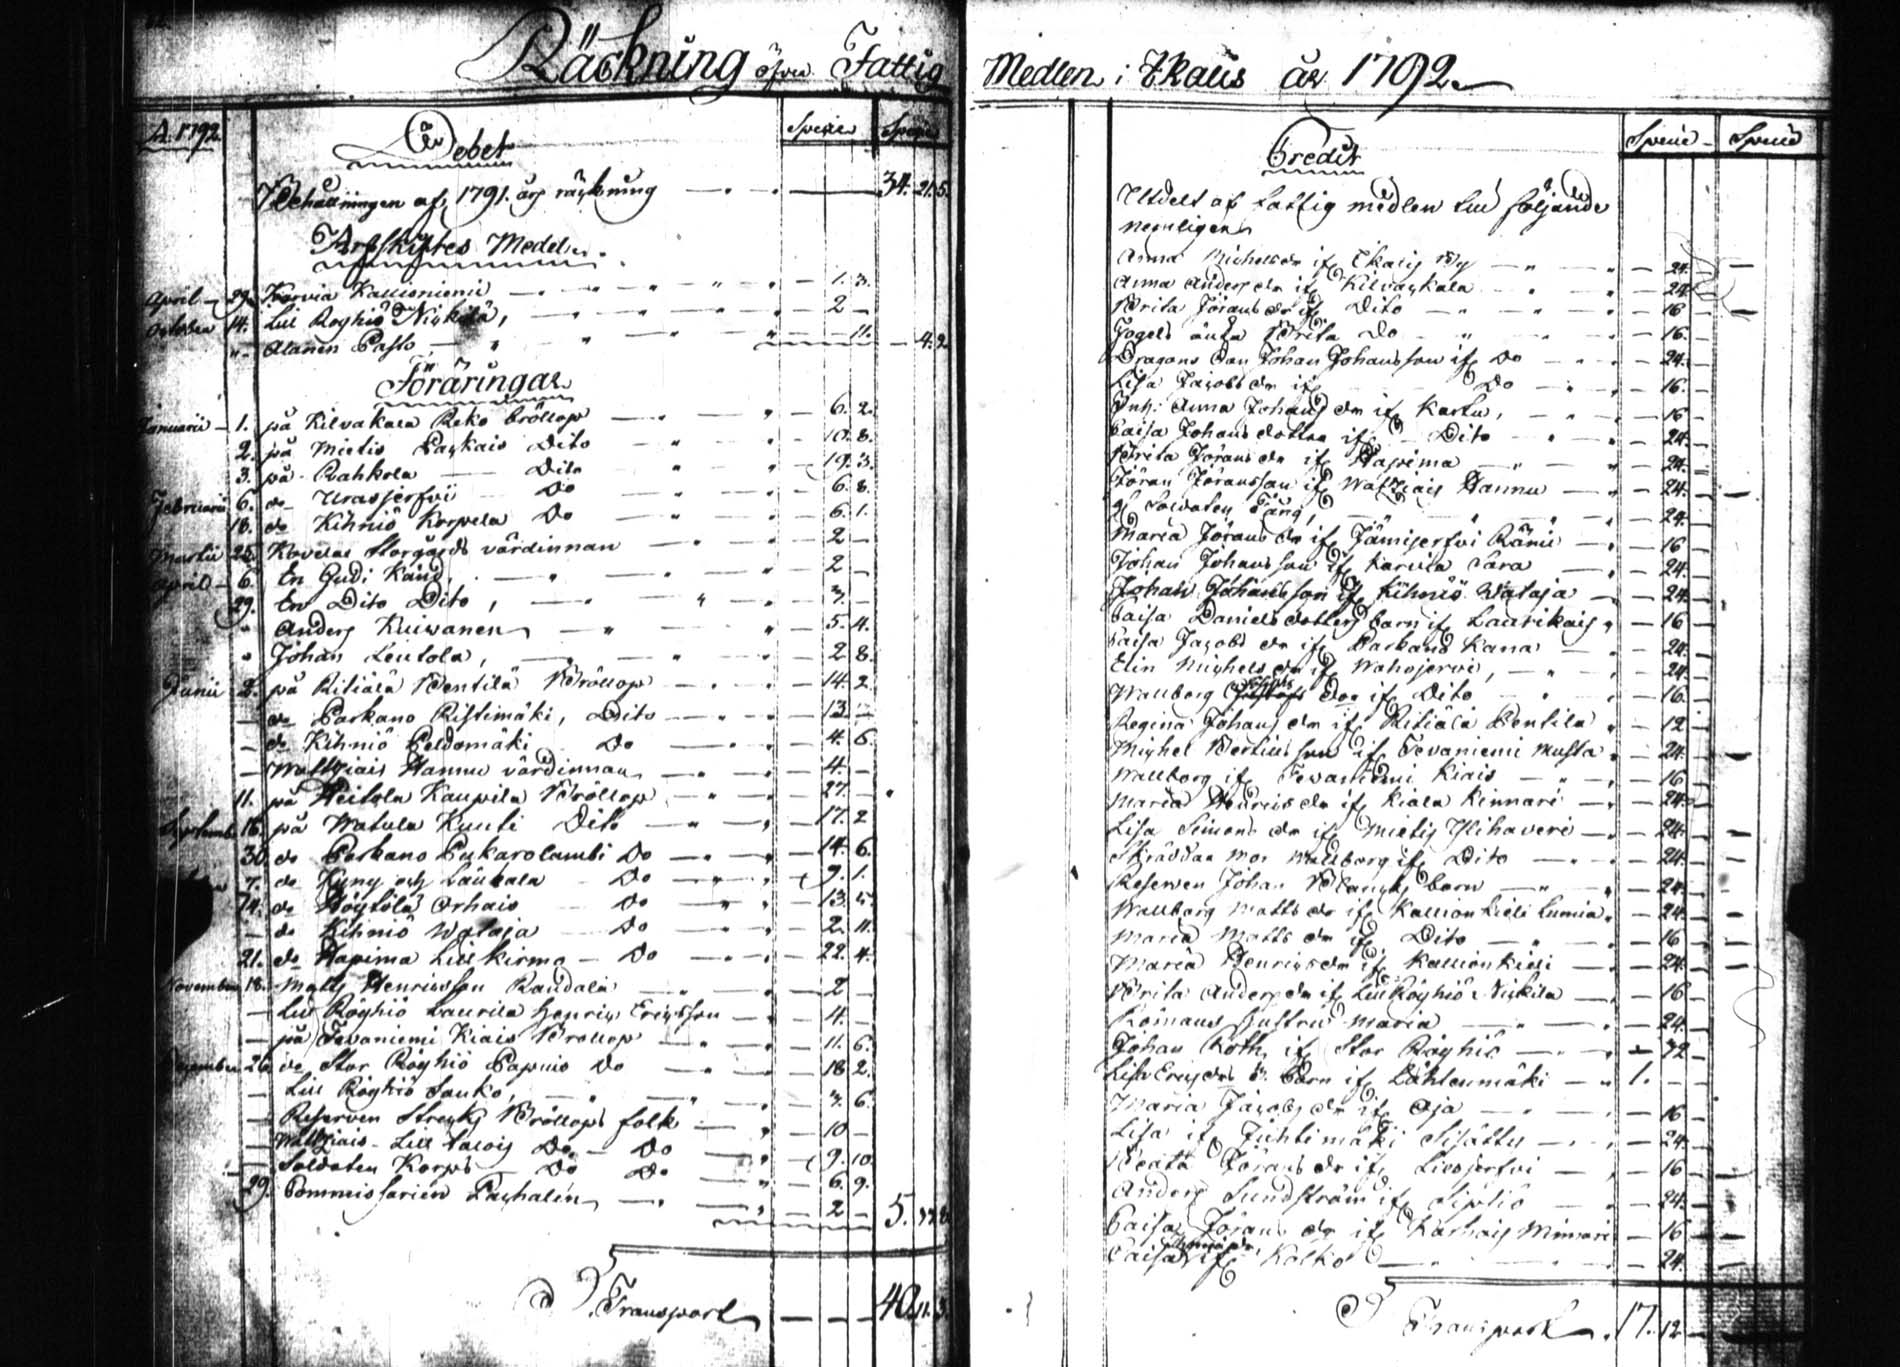 Räckning öfver Fattig Medlen i Ikalis år 1792.
A. 1792 Debet Specie Specie
Behållningen af 1791. års räckning 34. 21. 5.
Arfskiftes Medel.
April 29. Karvia Kallioniemi 1. 3.
October 14. Lill Röyhiö Niskila, 2
Alanen Pasto 11. 4. 2
Föräringar
Januarii 1. på Kilvakala Reko bröllop 6. 2.
2. på Mietis Paskais Dito 10. 8.
3. på Rahkola Dito 19. 3.
Februarii 6. do Urasjerfvi Do 6. 8.
18. do Kihniö Korpela Do 6. 1.
Martii 25. Kovelac Storgårds värdinnan 2
April 6. En Gudi Känd, 2
29. En Dito Dito, 3.
Anders Kuivanen 5. 4.
Johan Leutola, 2 8.
Junii 2. på Ritiälä Pentilä Bröllop 14. 2.
do Parkano Ristimäki, Dito 13
do Kihniö Peldomäki Do 4. 6.
Wattziais Hannu värdinnan 4.
11. på Heitola Kaupila Bröllop 27.
Septemb. 16. på Watula Kuuti Dito 17. 2
30. do Parkano Pukarolambi Do 14. 6.
7. do Kyny och Laukala Do 9. 1.
14. do Höytölä Orhais Do 13. 5.
do Kihniö Wataja Do 2. 11.
21. do Hapima Lill kirmo Do 22. 4.
November 18. Matts Henricsson Raudala 2
Lill Röyhiö Laurila Henric Ericsson 4.
på Tevaniemi Kiais Bröllop 11. 6.
December 26. do Stor Röyhiö Papnio Do 18 2.
Lill Röyhiö Sauko, 3. 6.
Reserven Strecks Bröllops folk 10
Wattziais Lill Do Do 9. 10.
Soldaten Korps Do Do 6. 9.
29. Commissarien Paxhalen 2 5.
Transport 40. 11. 3.
Credit Specie Specie
Utdelt af Fattig medlen till följande
nemligen
Anna Michelsdr ifr Ikalis By 24.
Anna Andersdr ifr Kilvakala 24.
Brita Jöransdr ifr Dito 16
Fogels änka Brita Do 16.
Dragons Johan Johansson ifr Do 24.
Lisa Jacobsdr ifr Do 16.
Inh: Anna Johansdr ifr Kartu, 16
Caisa Johansdotter ifr Dito 24.
Brita Joransdr ifr Hapima 24.
Jöran Jöransson ifr Wattziais Hannu 24.
Soldaten Färg, 24.
Maria Jöransdr ifr Jämijerfvi Rämi 16
Johan Johansson ifr Karvia Sara 24.
Johan Johansson ifr Kihniö Wataja 24.
Caisa Daniels dotters barn ifr Laurikais 16
Caisa Jacobsdr ifr Parkano Kana 24.
Elin Michelsdr ifr Wahojervi, 24.
Wallborg dor ifr Dito 16.
Regina Johansdr ifr Ritiälä Pentila 12
Michel Bertilsson ifr Tevaniemi Musta 24.
Wallborg ifr Tevaniemi Kiais 16
Maria Henricsdr ifr Kiala Kinnari 24.
Lisa Simonsdr ifr Mietis Ylihaveri 24.
Skräddar mor Wallborg ifr Dito 24.
Reserven Johan Blancks barn 24.
Wallborg Mattsdr ifr Kallionkieli Lumia 24.
Maria Mattsdr ifr Dito 16
Maria Henricsdr ifr Kallionkieli 24.
Brita Andersdr ifr Lill Röyhiö Niskila 16
Romans hustru Maria 24.
Johan Roth ifr Stor Röyhiö 32
Lisa Ericsdrs barn ifr Lähtenmäki 1.
Maria Jacobsdr ifr Oja 16
Lisa ifr Juhtimäki Sisättu 24.
Beata Jöransdr ifr Livojerfvi 16
Anders Sundström ifr Sipsiö 24.
Caisa Jöransdr ifr Karhais Minnari 16
Caisa Thomasdr ifr Kolko 24.
Transport 17. 12